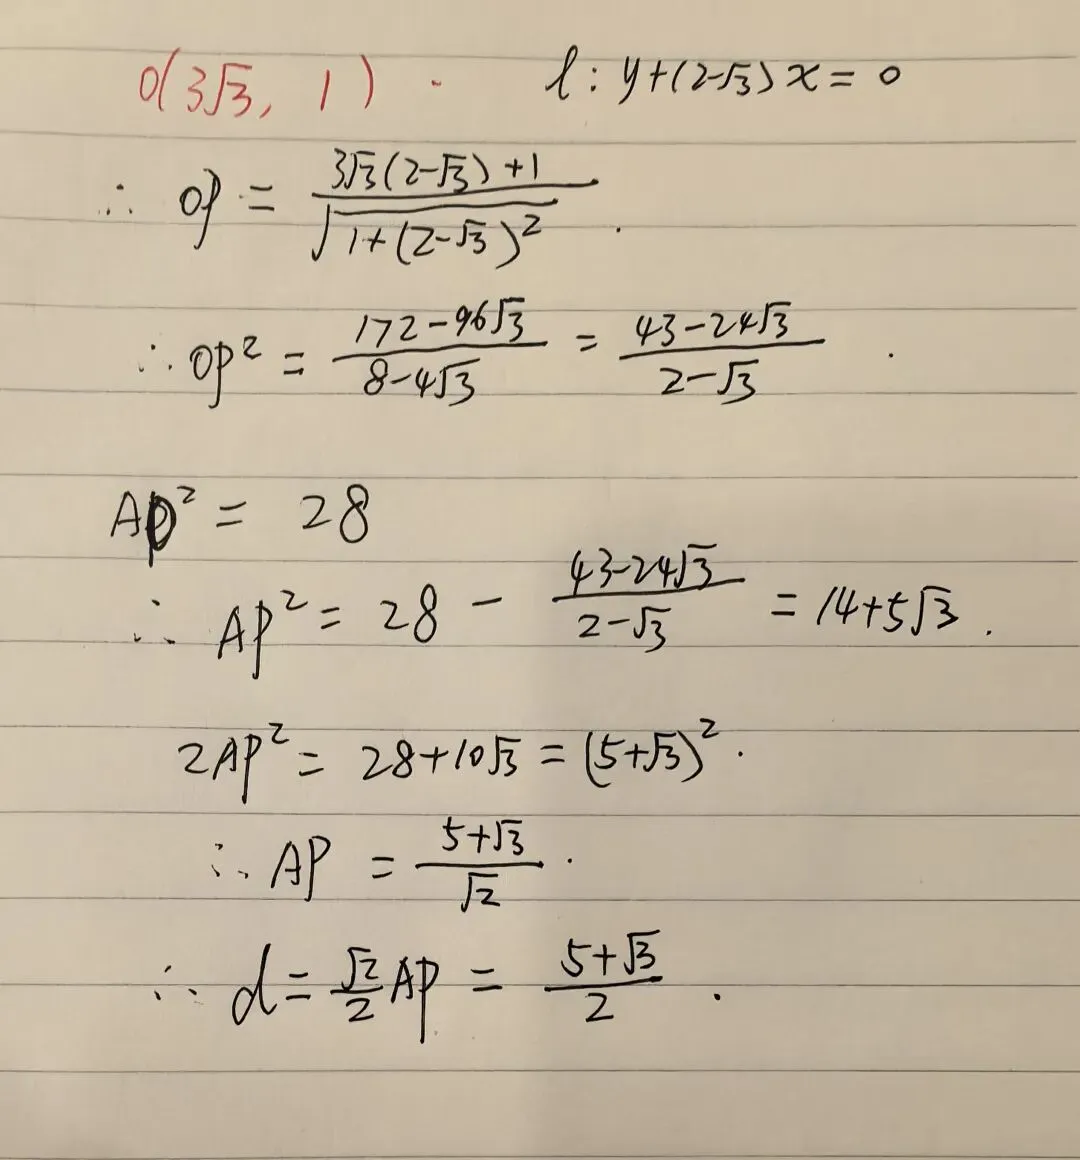 O(3√3, 1) . l: y+(2-√3)x=0
∴ OP = (3√3(2-√3)+1)/√(1+(2-√3)²) .
∴ OP² = (172-96√3)/(8-4√3) = (43-24√3)/(2-√3) .
AO² = 28
∴ AP² = 28 - (43-24√3)/(2-√3) = 14+5√3 .
2AP² = 28+10√3 = (5+√3)² .
∴ AP = (5+√3)/√2 .
∴ d = √2/2 AP = (5+√3)/2 .